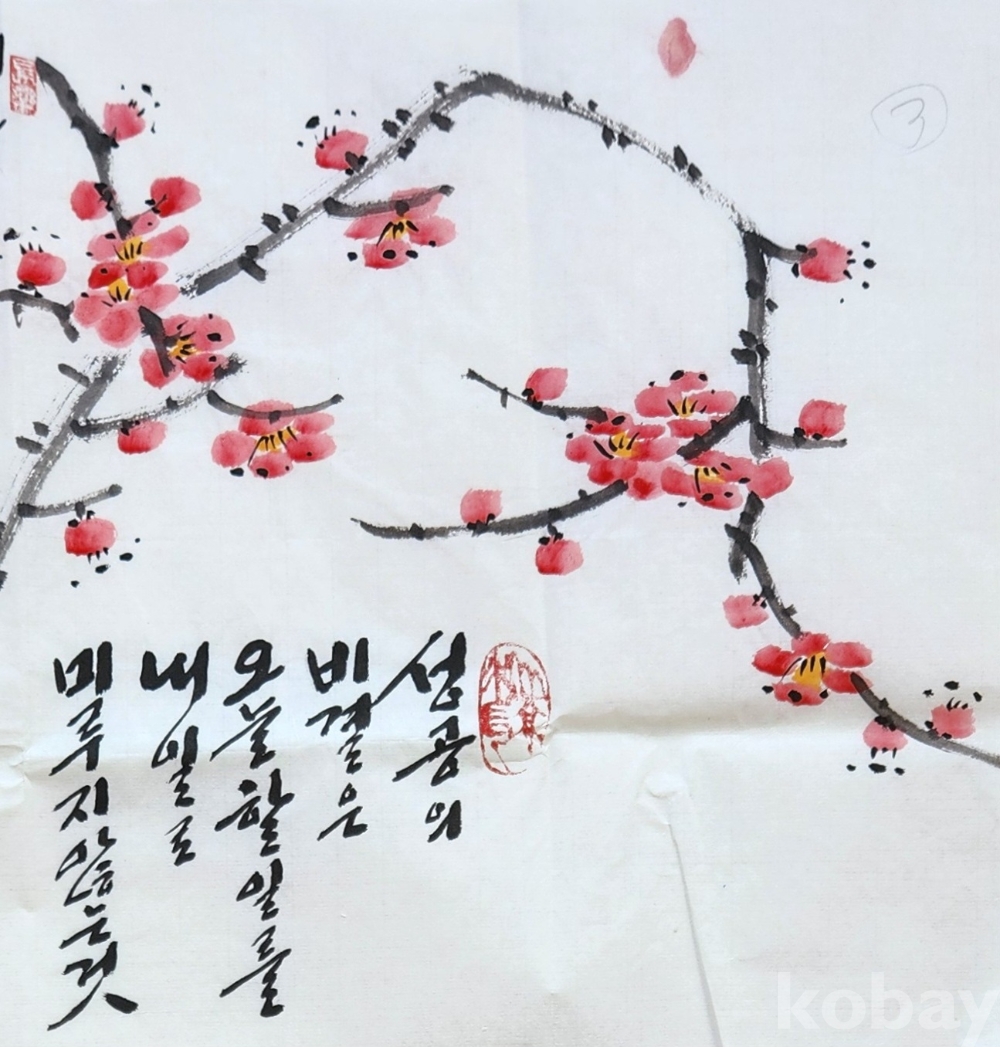 성공의
비결은
오늘할일를
내일로
미루지안는것
3
kobay